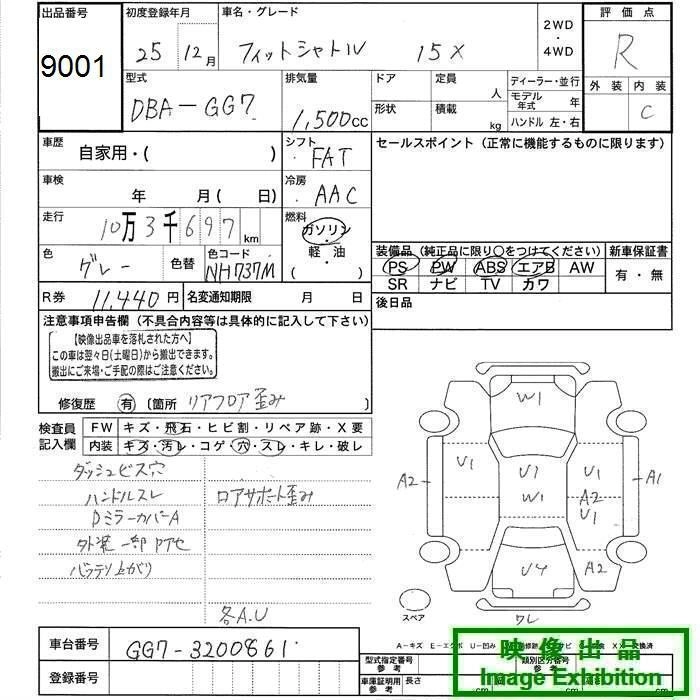 出品番号 初度登録年月 車名・グレード 2WD・4WD 評価点
9001 25 12月 フィットシャトル 15X R
型式 排気量 ドア 定員 人 ディーラー・並行 外装 内装
DBA-GG7 1,500cc 形状 積載 kg モデル年式 年 C
ハンドル 左・右
車歴 自家用・( ) シフト FAT セールスポイント (正常に機能するものに限ります)
車検 年 月( 日) 冷房 AAC
走行 10万3千697km 燃料 ガソリン・軽油 ( )
色 グレー 色替 色コード NH737M
装備品 (純正品に限り○をつけてください) 新車保証書
PS PW ABS エアB AW 有・無
SR ナビ TV カワ
R券 11,440円 名変通知期限 月 日 後日品
注意事項申告欄 (不具合内容等は具体的に記入して下さい)
【映像出品車を落札された方へ】
この車は翌々日(土曜日)から搬出できます。
搬出にご来場・ご手配の際はご注意ください。
修復歴 有 〔箇所 リアフロア歪み
検査員記入欄 FW キズ・飛石・ヒビ割・リペア跡・X要
内装 キズ・汚レ・コゲ・穴・スレ・キレ・破レ
ダッシュビス穴
ハンドルスレ ロアサポート歪み
DミラーカバーA
外装一部タッチ
バッテリ上がり
各A.U
W1
A2 U1 U1 U1 A1
W1 A2
U1
U4 A2
スペア ワレ
車台番号 GG7-3200861
登録番号
A-キズ E-エクボ U-凹み
型式指定番号 参考 類別区分番号 参考
車庫証明用 参考 長さ cm cm cm
映像出品
Image Exhibition